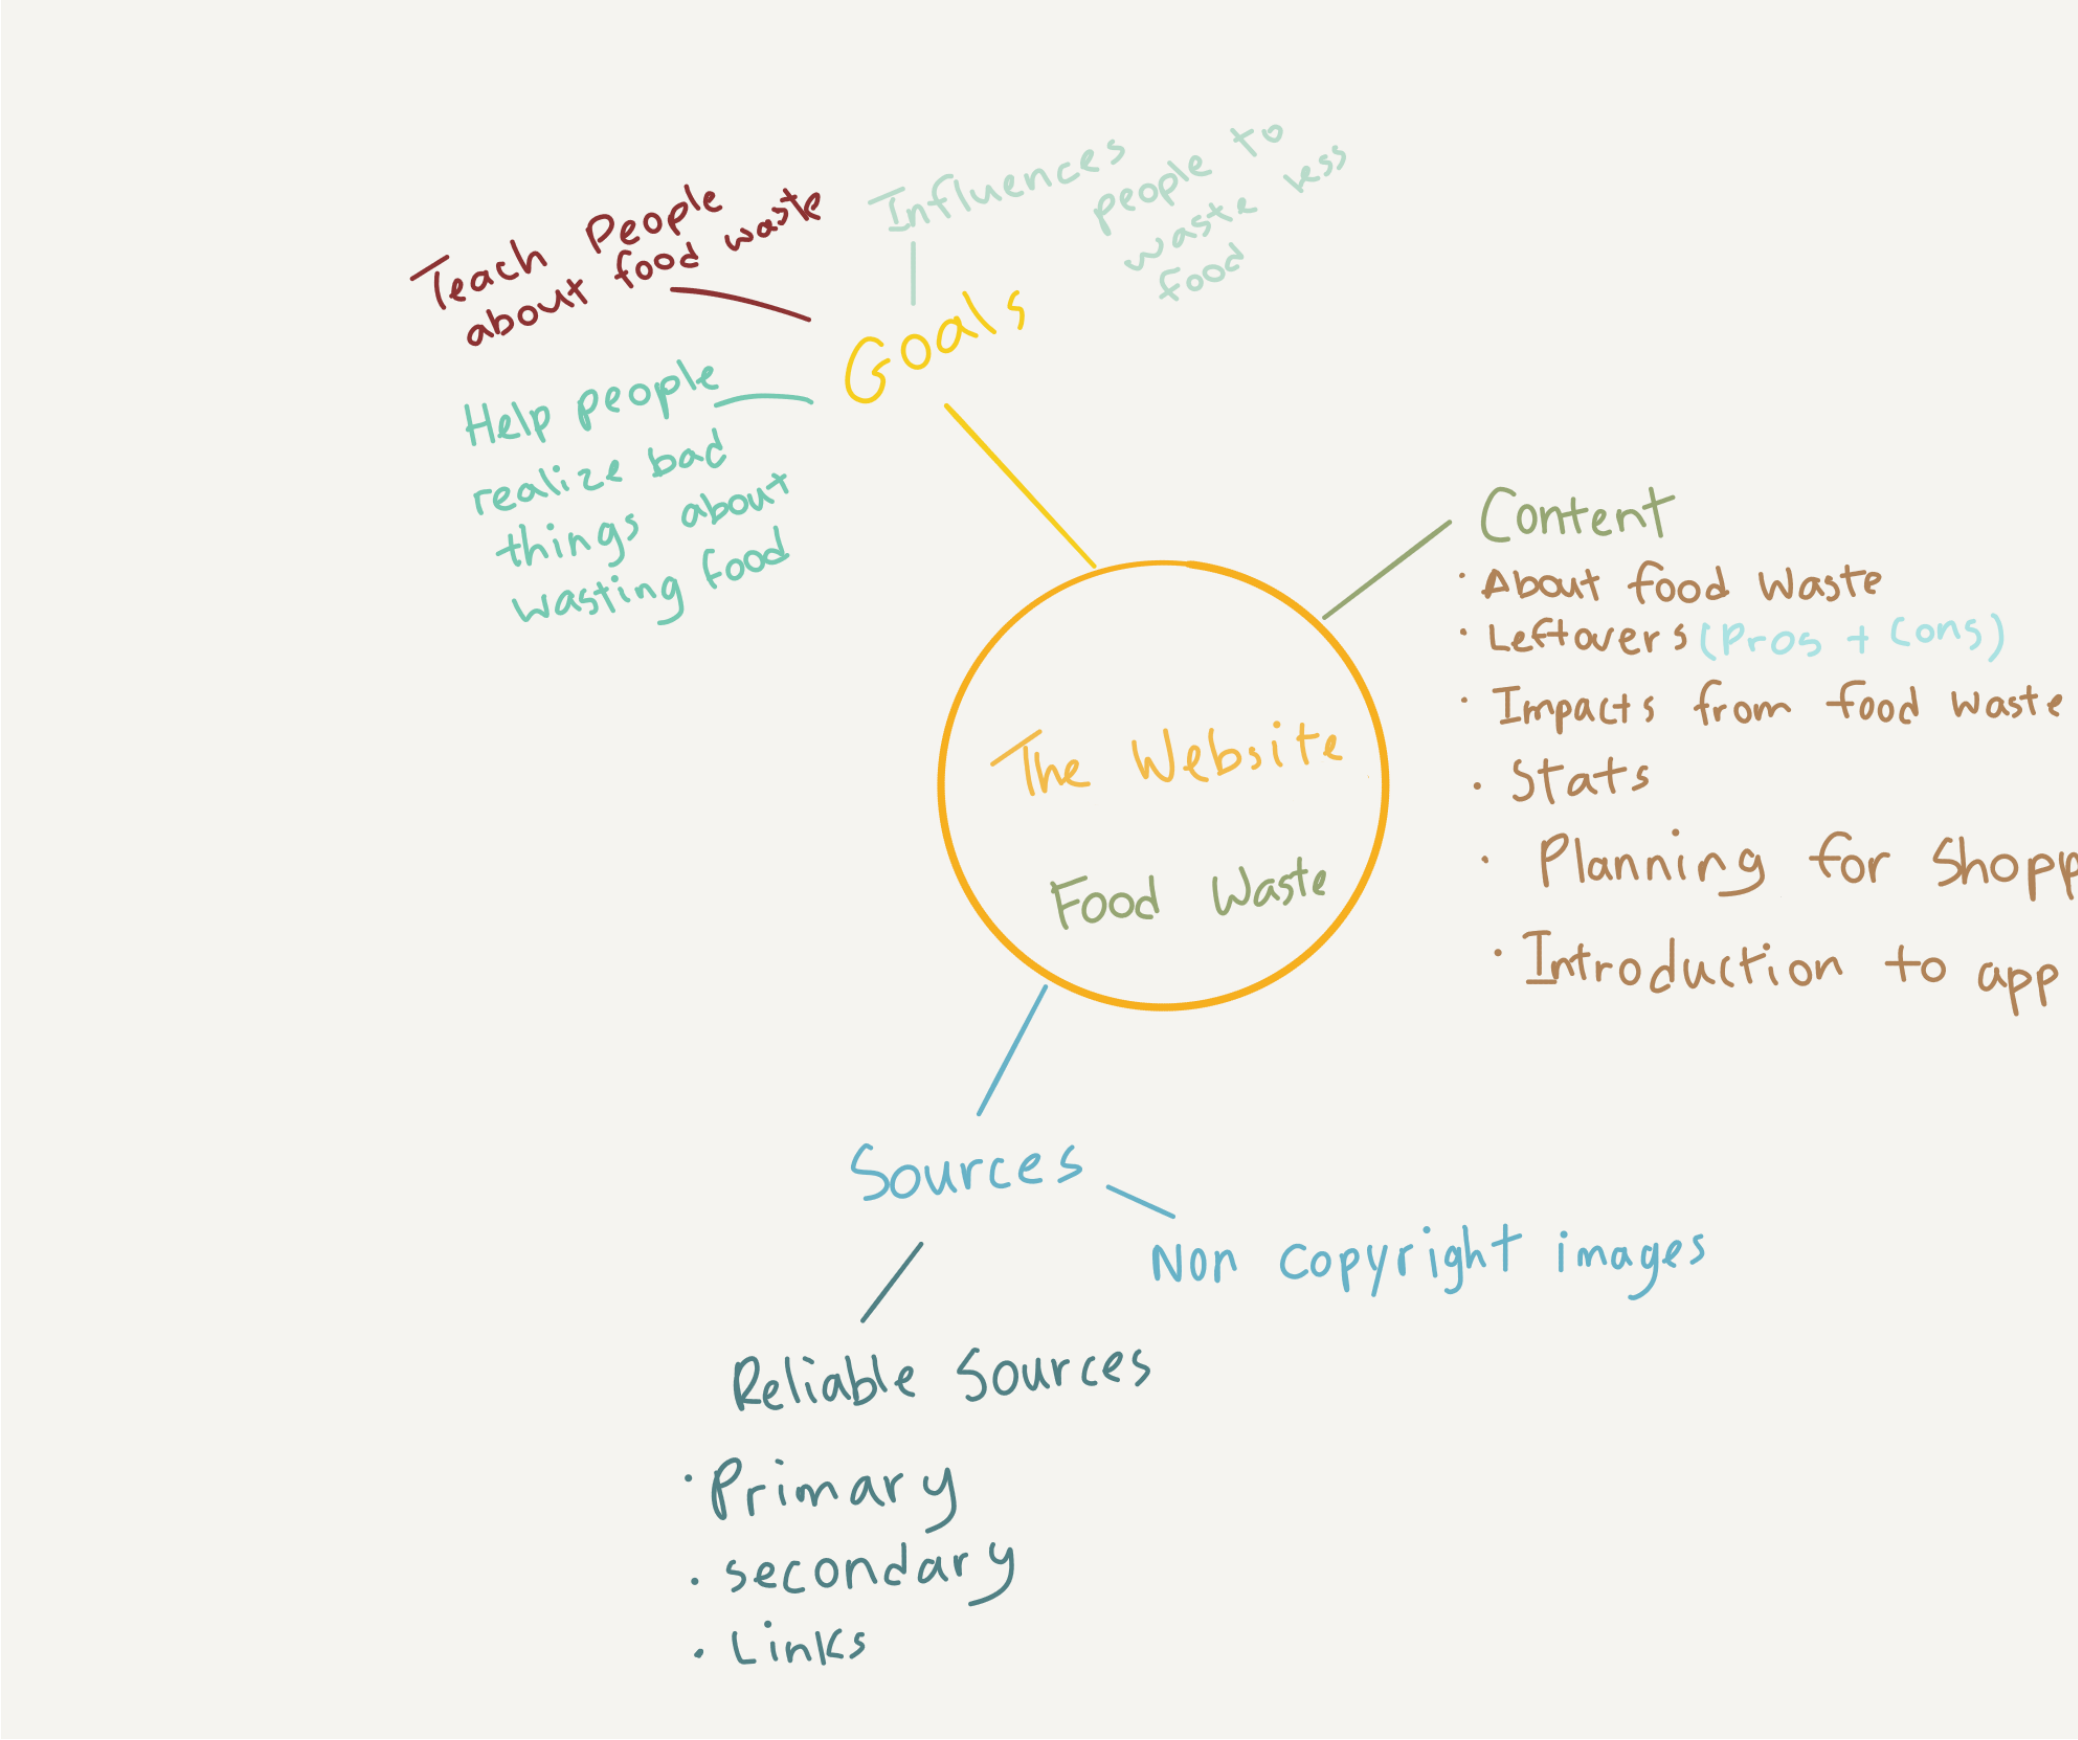 Teach People
about food waste
Influences
people to
waste less
food
Goals
Help people
realize bad
things about
wasting food
Content
· About food waste
· Leftovers (Pros + Cons)
· Impacts from food waste
· Stats
· Planning for Shopp
· Introduction to app
The Website
Food Waste
Sources
Non Copyright images
Reliable Sources
· Primary
· secondary
· Links